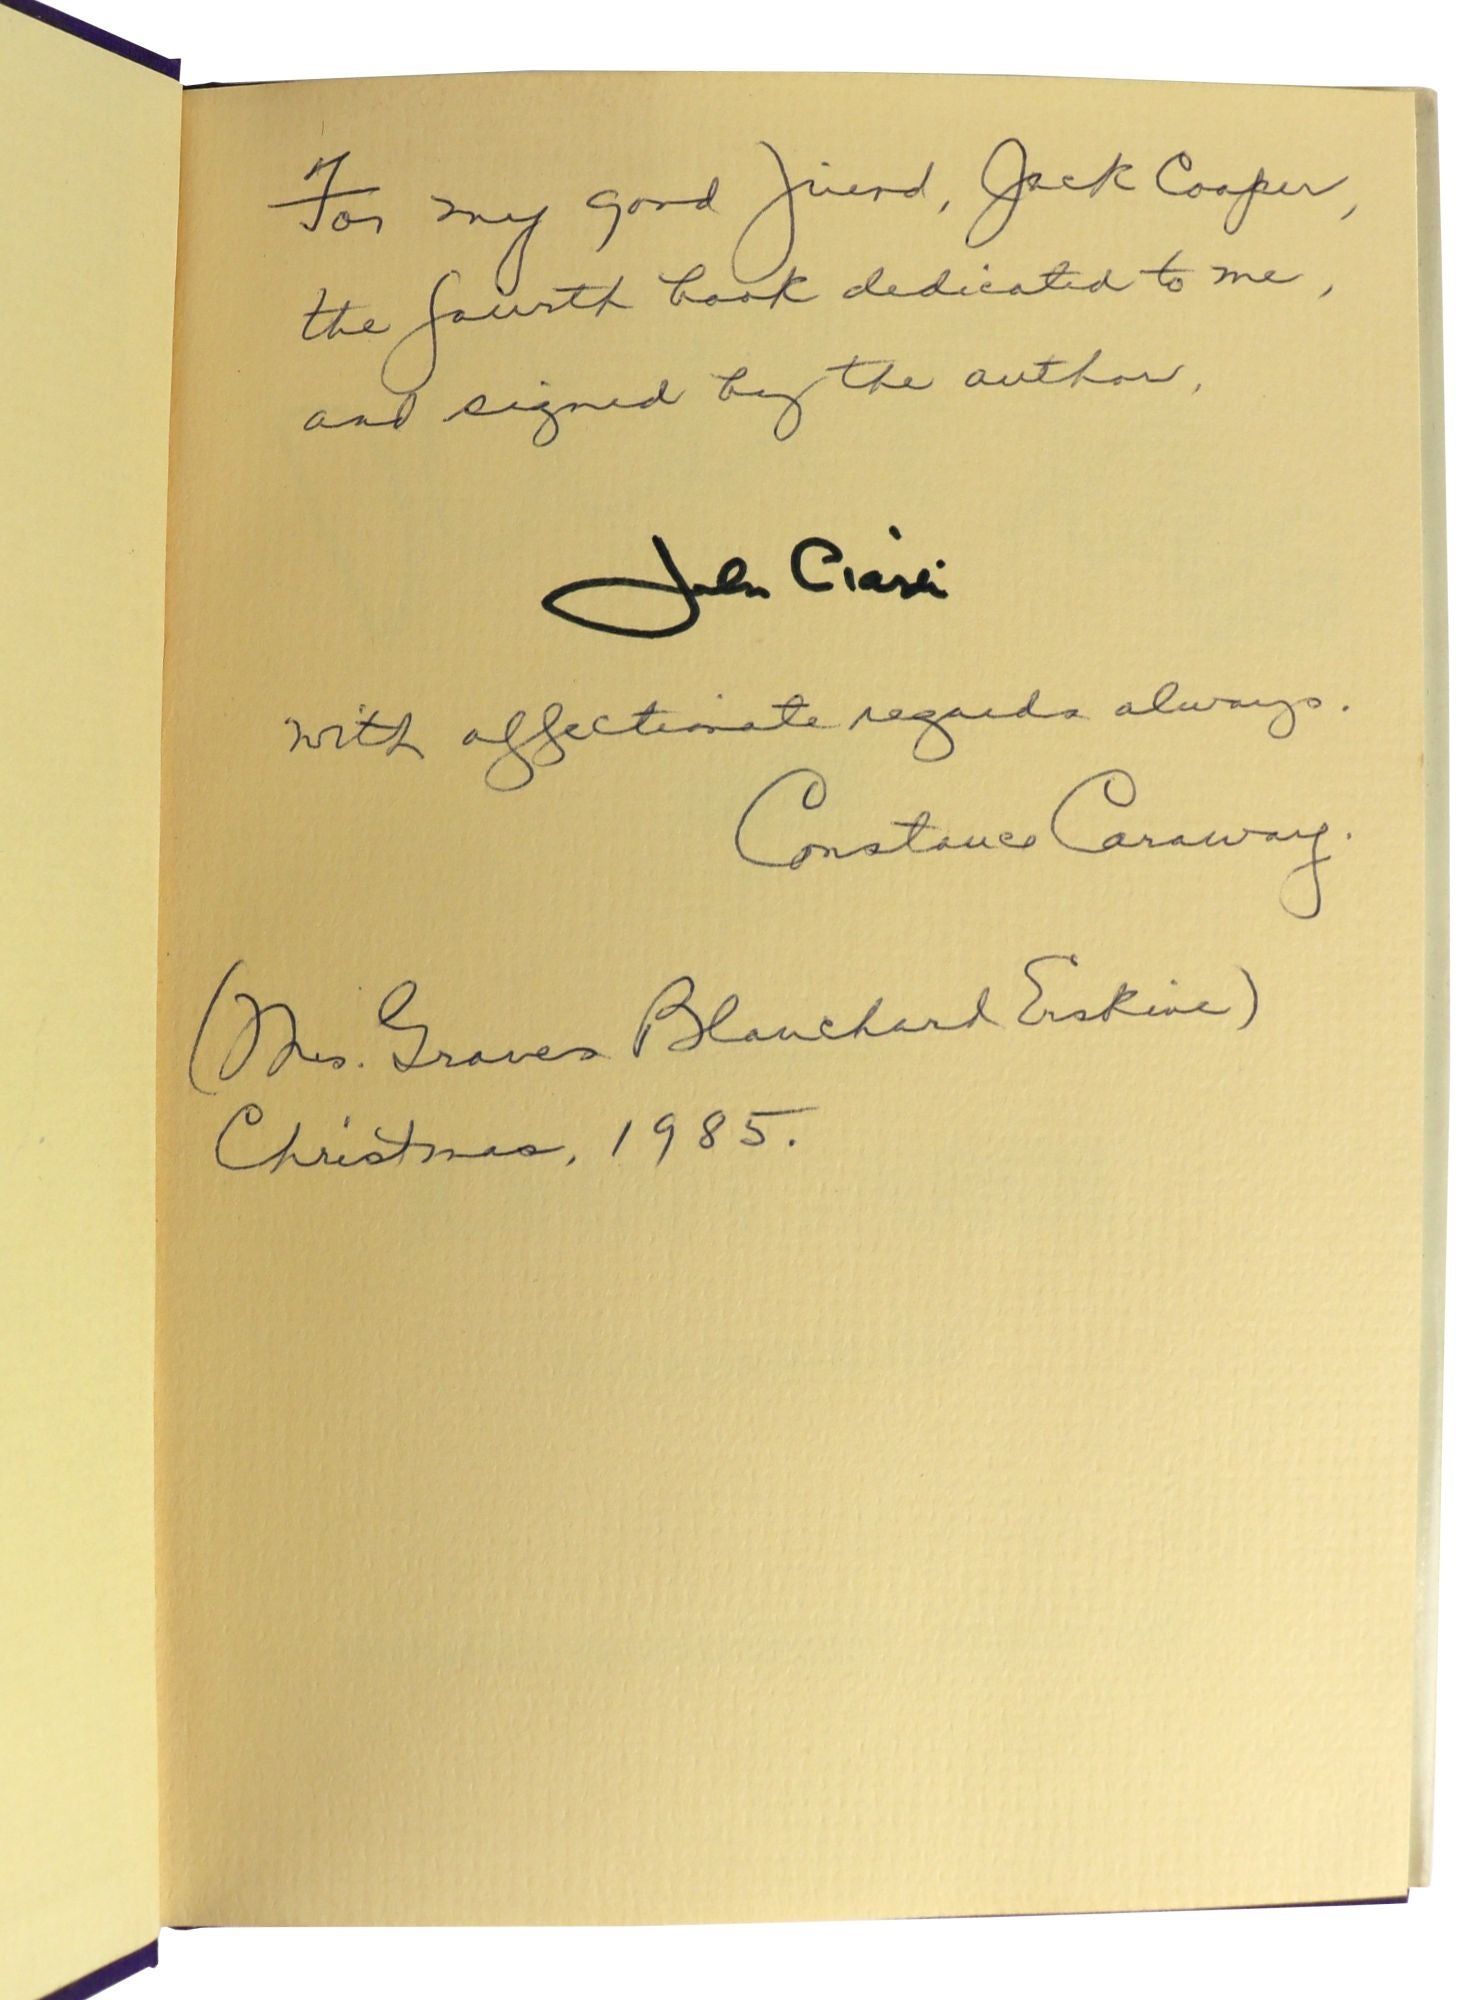 For my good friend, Jack Cooper,
the fourth book dedicated to me,
and signed by the author,
John Ciardi
with affectionate regards always.
Constance Caraway.
(Mrs. Graves Blanchard Erskine)
Christmas, 1985.